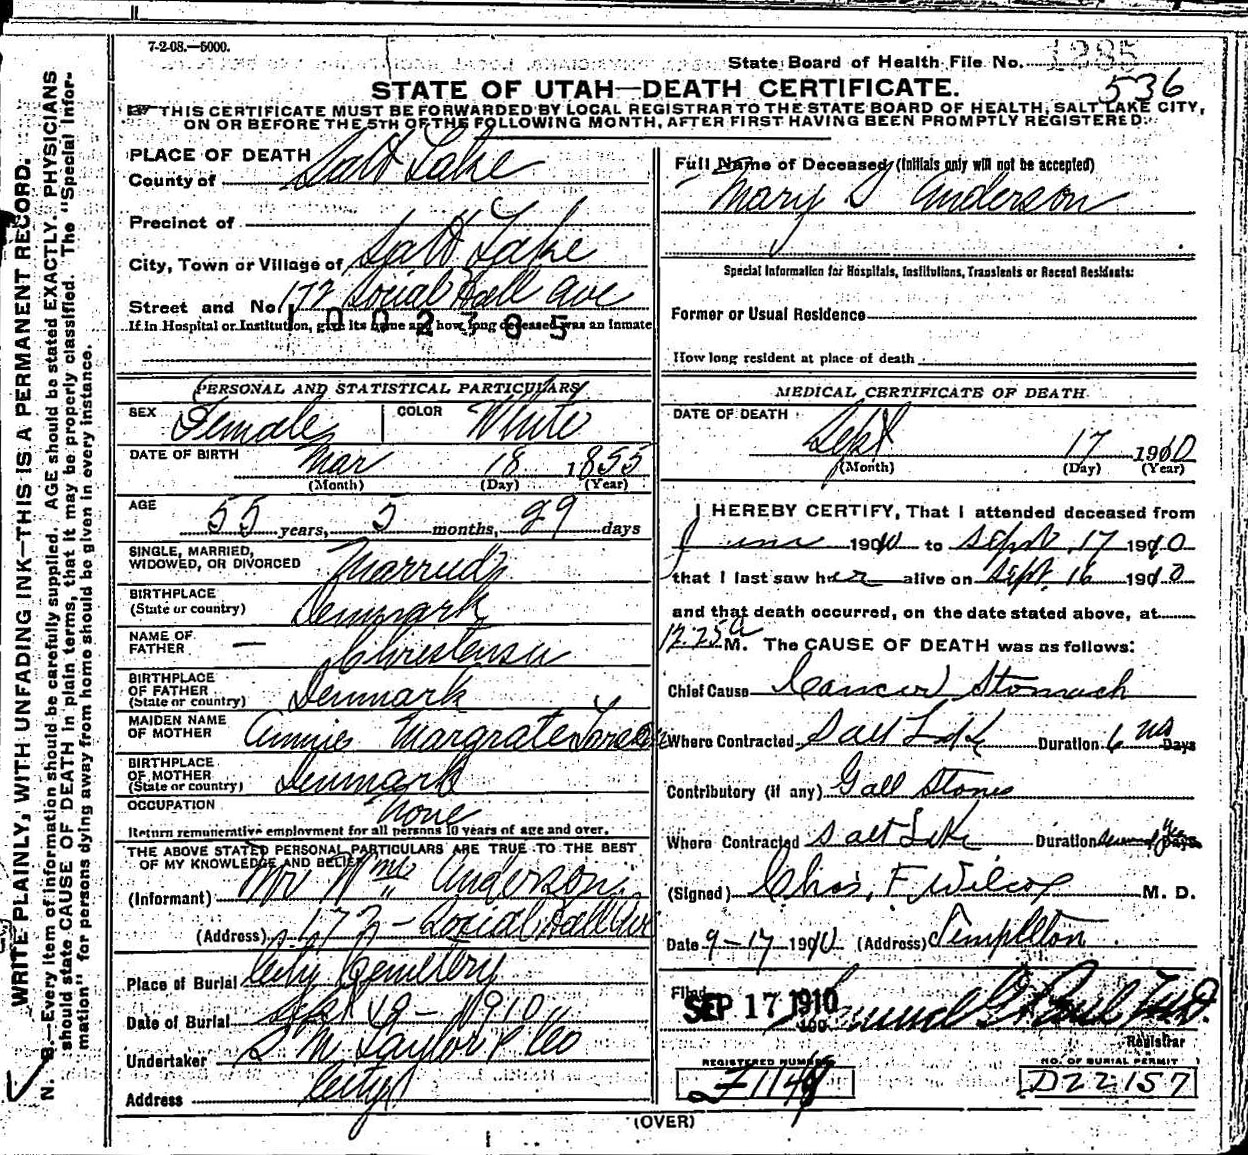 7-2-08.—5000.
State Board of Health File No. 1285
536
STATE OF UTAH—DEATH CERTIFICATE.
THIS CERTIFICATE MUST BE FORWARDED BY LOCAL REGISTRAR TO THE STATE BOARD OF HEALTH, SALT LAKE CITY,
ON OR BEFORE THE 5TH OF THE FOLLOWING MONTH, AFTER FIRST HAVING BEEN PROMPTLY REGISTERED.
WRITE PLAINLY, WITH UNFADING INK—THIS IS A PERMANENT RECORD.
N. B.—Every item of information should be carefully supplied. AGE should be stated EXACTLY. PHYSICIANS
should state CAUSE OF DEATH in plain terms, that it may be properly classified. The "Special Infor-
mation" for persons dying away from home should be given in every instance.
PLACE OF DEATH
County of Salt Lake
Precinct of
City, Town or Village of Salt Lake
Street and No. 172 Social Hall Ave
If in Hospital or Institution, give its name and how long deceased was an inmate
1002305
PERSONAL AND STATISTICAL PARTICULARS
SEX Female COLOR White
DATE OF BIRTH Mar 18 1855
(Month) (Day) (Year)
AGE 55 years, 5 months, 29 days
SINGLE, MARRIED,
WIDOWED, OR DIVORCED Married
BIRTHPLACE
(State or country) Denmark
NAME OF
FATHER — Christensen
BIRTHPLACE
OF FATHER
(State or country) Denmark
MAIDEN NAME
OF MOTHER Annie Margrate
BIRTHPLACE
OF MOTHER
(State or country) Denmark
OCCUPATION None
Return remunerative employment for all persons 10 years of age and over.
THE ABOVE STATED PERSONAL PARTICULARS ARE TRUE TO THE BEST
OF MY KNOWLEDGE AND BELIEF
(Informant) Mr Wm Anderson
(Address) 172 - Social Hall Ave
Place of Burial City Cemetery
Date of Burial Sept 19 - 1910
Undertaker S M Taylor & Co
Address City
Full Name of Deceased (Initials only will not be accepted)
Mary S Anderson
Special Information for Hospitals, Institutions, Transients or Recent Residents:
Former or Usual Residence
How long resident at place of death
MEDICAL CERTIFICATE OF DEATH
DATE OF DEATH
Sept 17 1910
(Month) (Day) (Year)
I HEREBY CERTIFY, That I attended deceased from
June 1910 to Sept 17 1910
that I last saw her alive on Sept. 16 1910
and that death occurred, on the date stated above, at
12.25 a M. The CAUSE OF DEATH was as follows:
Chief Cause Cancer Stomach
Where Contracted Salt Lake Duration 6 Days
Contributory (if any) Gall Stones
Where Contracted Salt Lake Duration Days
(Signed) Chas. F. Wilcox M. D.
Date 9-17 1910 (Address) Templeton
Filed SEP 17 1910 Samuel G. Paul
Registrar
REGISTERED NUMBER
NO. OF BURIAL PERMIT
D22157
(OVER)